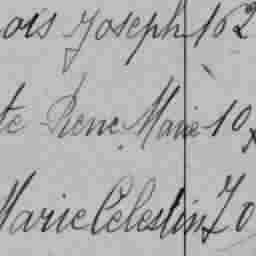 ois Joseph 162
te Rene Marie 10
Marie Celestin 70